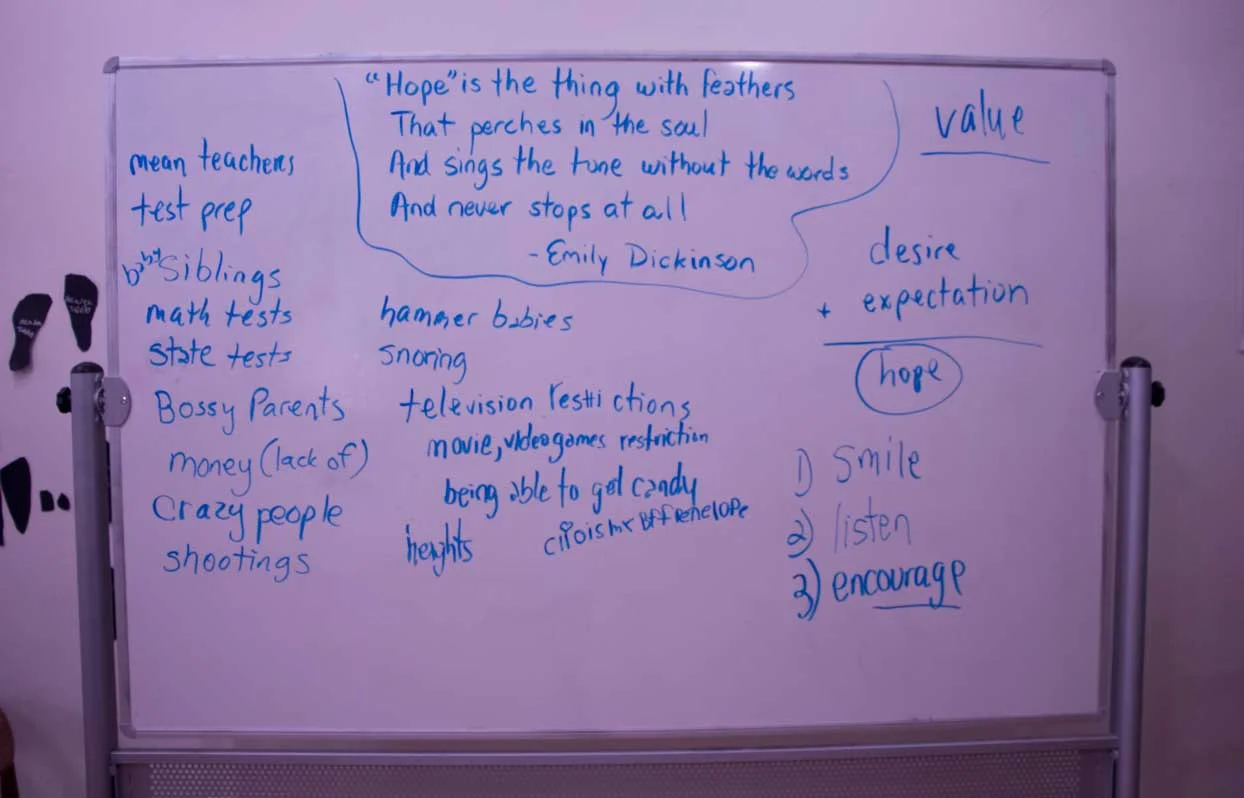 "Hope" is the thing with feathers
That perches in the soul
And sings the tune without the words
And never stops at all
- Emily Dickinson
mean teachers
test prep
baby siblings
math tests
state tests
Bossy Parents
money (lack of)
Crazy people
shootings
hammer babies
snoring
television restrictions
movie, videogames restriction
being able to get candy
heights
value
desire
+ expectation
hope
1) smile
2) listen
3) encourage